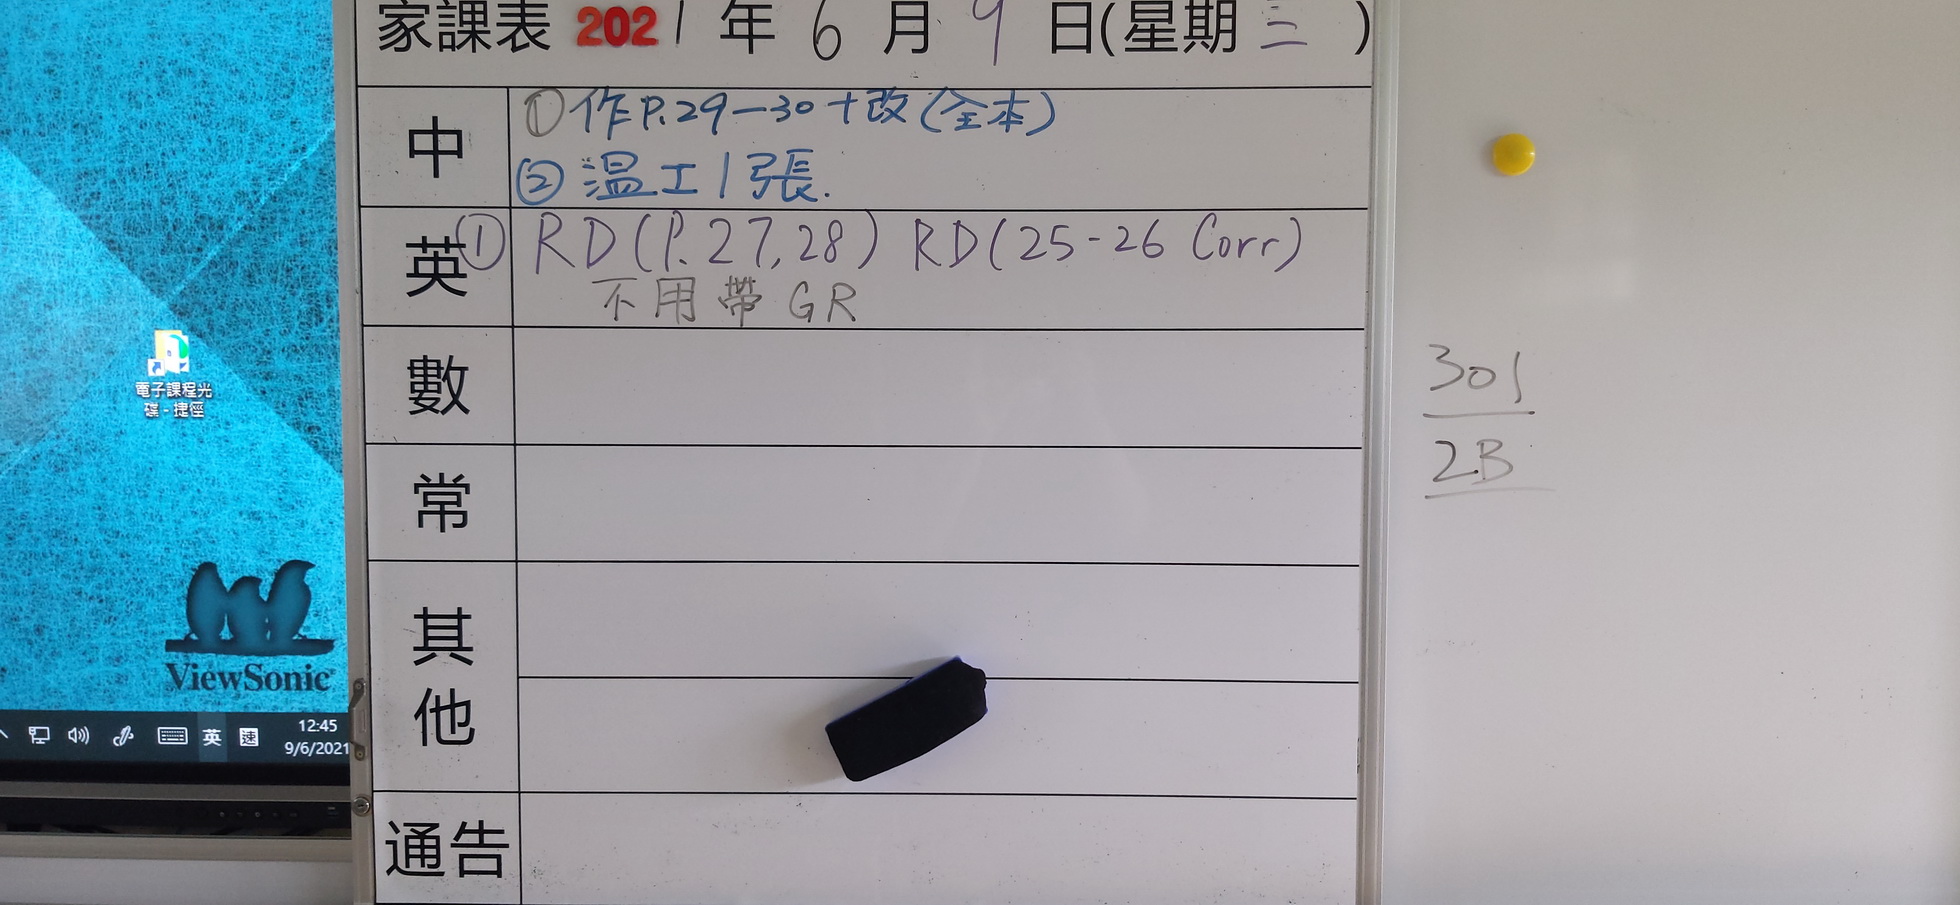 家課表 2021 年 6 月 9 日(星期三)
中
①作P.29-30+改(全本)
②温工1張.
英
① RD(P.27,28) RD(25-26 Corr)
不用帶GR
數
常
其他
通告
電子課程光
碟 - 捷徑
ViewSonic
英 速
12:45
9/6/2021
301
2B